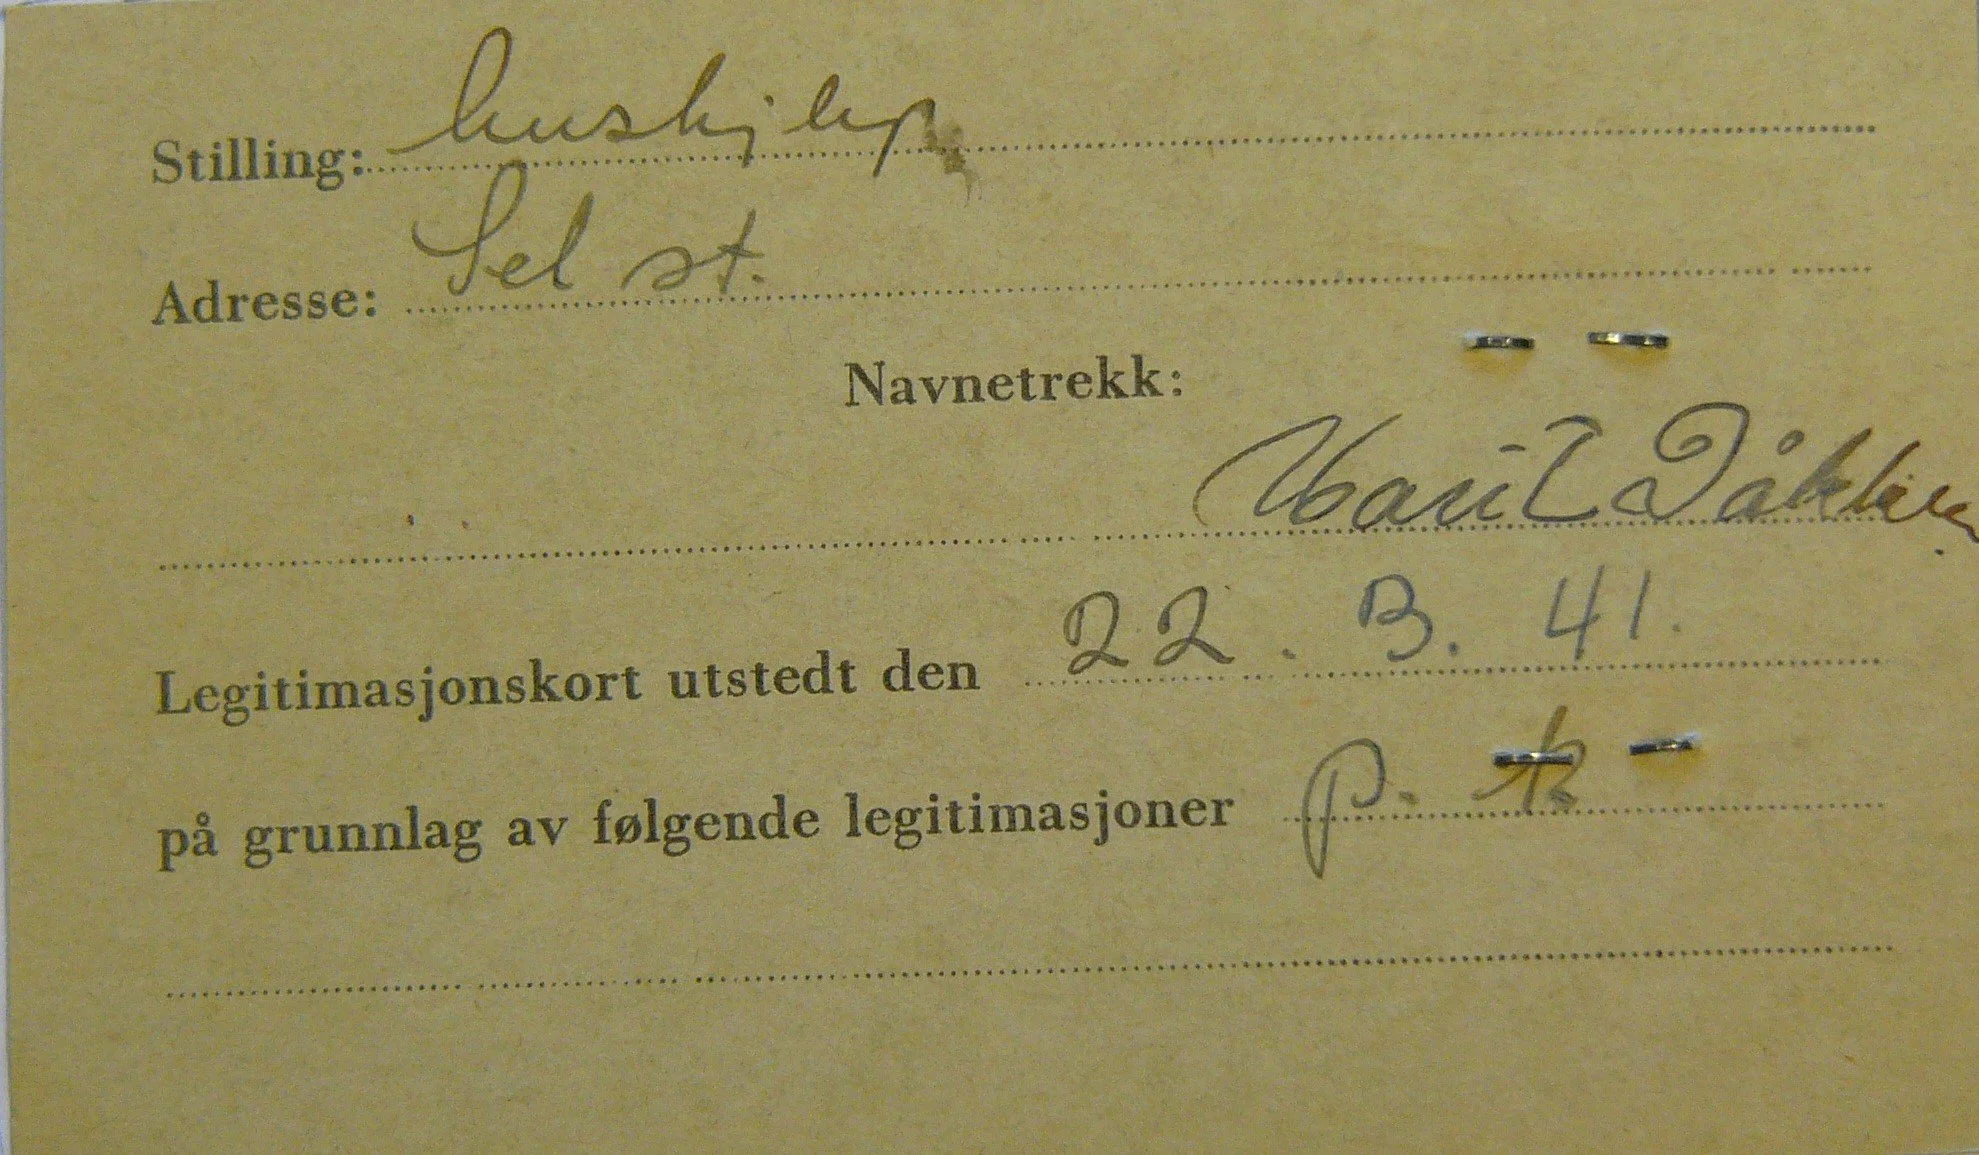 Stilling: hushjelp
Adresse: Sel st.
Navnetrekk:
Marit
Legitimasjonskort utstedt den 22. 3. 41.
på grunnlag av følgende legitimasjoner p. k